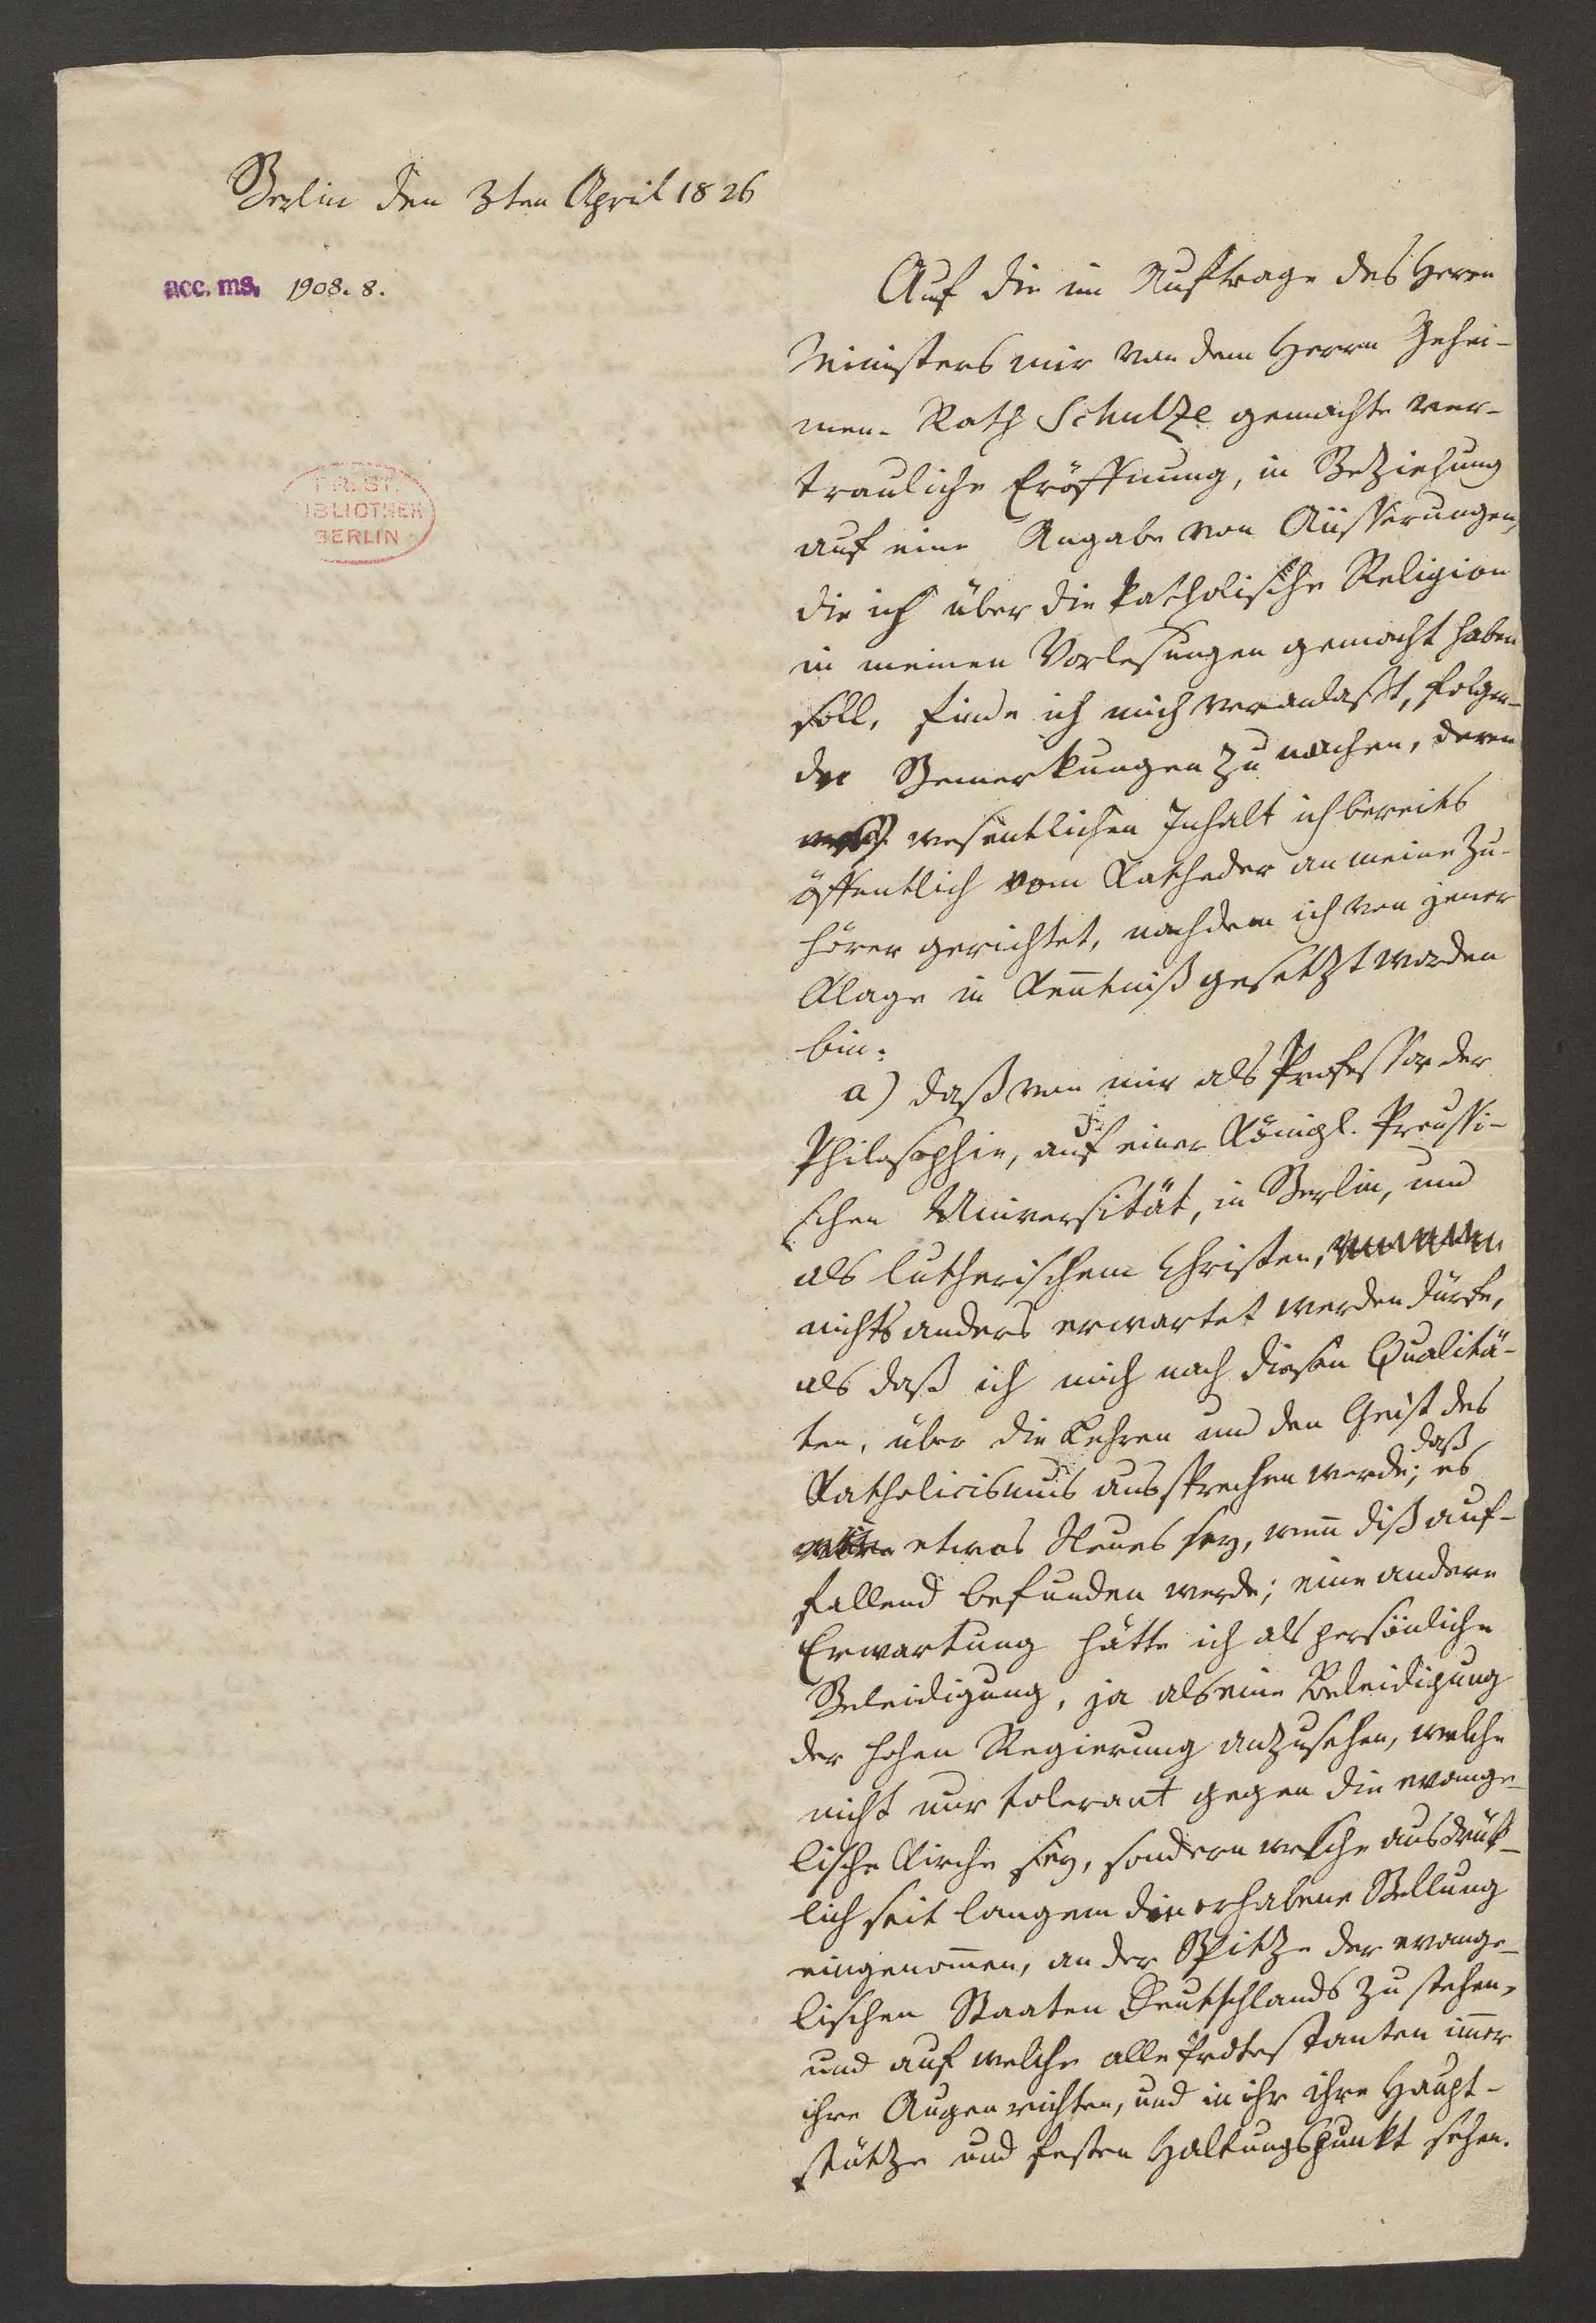 Berlin den 3ten April 1826
acc. ms. 1908. 8.
PR. ST.
IBLIOTHEK
BERLIN
Auf die im Auftrage des Herrn
Ministers mir von dem Herrn Gehei-
men-Rath Schulze gemachte ver-
trauliche Eröffnung, in Beziehung
auf eine Angabe von Äusserungen,
die ich über die katholische Religion
in meinen Vorlesungen gemacht haben
soll, finde ich mich veranlaßt, folgen-
de Bemerkungen zu machen, deren
wesentlichen Inhalt ich bereits
öffentlich vom Katheder an meine Zu-
hörer gerichtet, nachdem ich von jener
Klage in Kentniß gesetzt worden
bin:
a) daß von mir als Professor der
Philosophie, auf einer Königl. Preussi-
schen Universität, in Berlin, und
als lutherischem Christen,
nichts anders erwartet werden dürfe,
als daß ich mich nach diesen Qualitä-
ten, über die Lehren und den Geist des
Katholicismus aussprechen werde; daß es
etwas Neues sey, wenn diß auf-
fallend befunden werde; eine andere
Erwartung hätte ich als persönliche
Beleidigung, ja als eine Beleidigung
der hohen Regierung anzusehen, welche
nicht nur tolerant gegen die evange-
lische Kirche sey, sondern welche ausdrük-
lich seit langem die erhabene Stellung
eingenomen, an der Spitze der evange-
lischen Staaten Deutschlands zu stehen,
und auf welche alle Protestanten imer
ihre Augen richten, und in ihr ihre Haupt-
stütze und festen Haltungspunkt sehen.